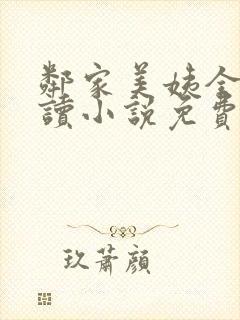 鄰家美姨全
讀小說免費
玖蕭顏